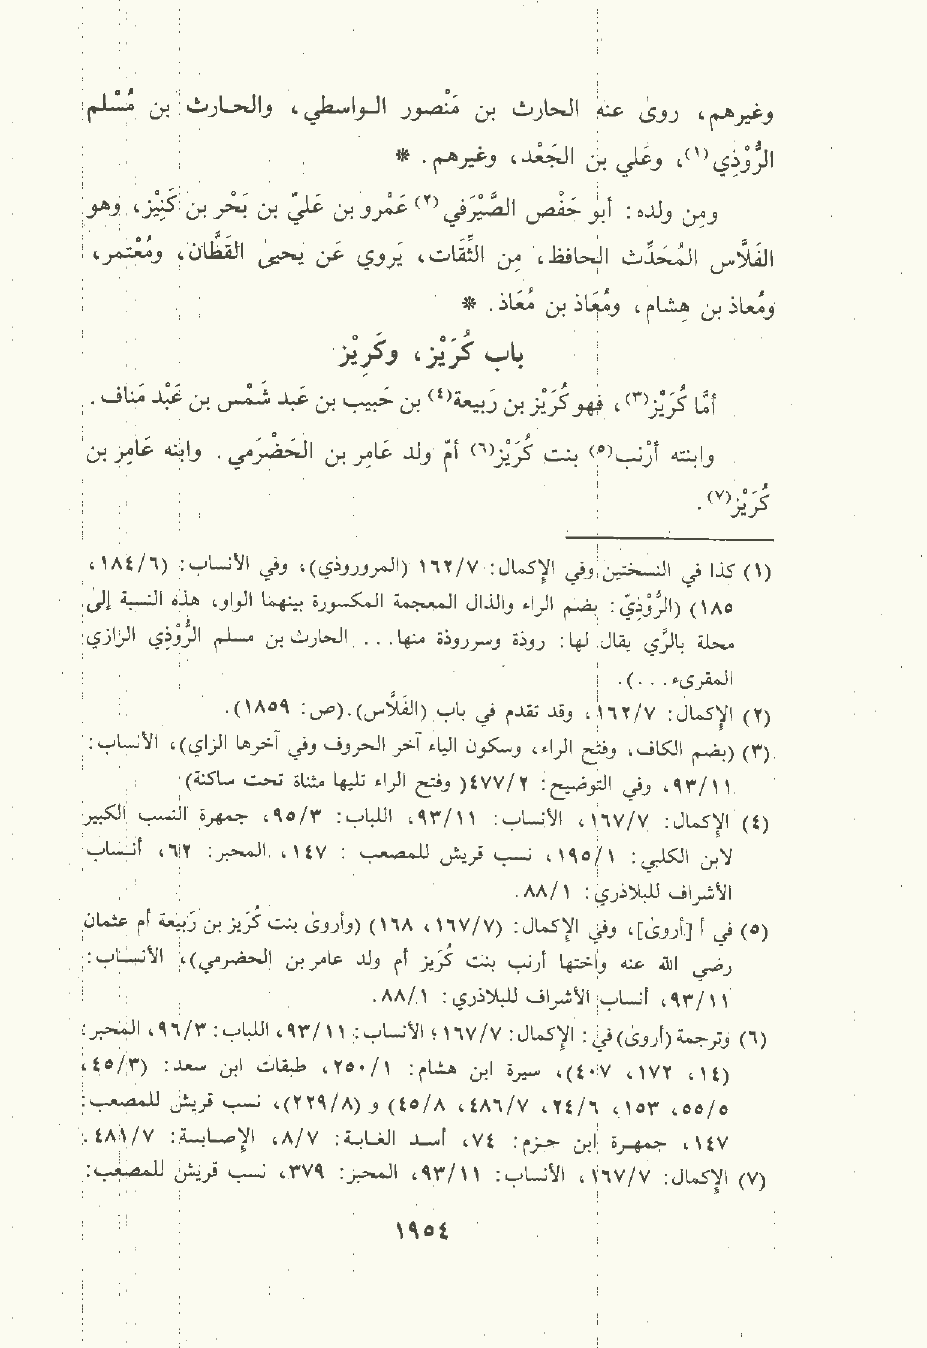 وغيرهم، روى عنه الحارث بن مَنْصور الـواسطي، والحـارث بن مُسْلم
الرُّوْذِي(١)، وعَلي بن الجَعْد، وغيرهم. *
ومِن ولده: أبو حَفْص الصَّيْرَفي(٢) عَمْرو بن عَليّ بن بَحْر بن كَنِيْز، وهو
الفَلَّاس المُحَدِّث الحافظ، مِن الثِّقَات، يَروي عَن يحيى القَطَّان، ومُعْتمر،
ومُعاذ بن هِشام، ومُعَاذ بن مُعَاذ. *
باب كُرَيْز، وكَرِيْز
أمَّا كُرَيْز(٣)، فهو كُرَيْز بن رَبيعة(٤) بن حَبيب بن عَبد شَمْس بن عَبْد مَناف.
وابنته أَرْنب(٥) بنت كُرَيْز(٦) أمّ ولد عَامِر بن الحَضْرَمي. وابنه عَامِر بن
كُرَيْز(٧).
(١) كذا في النسختين وفي الإكمال: ١٦٢/٧ (المروروذي)، وفي الأنساب: (١٨٤/٦،
١٨٥) (الرُّوْذِيّ: بضم الراء والذال المعجمة المكسورة بينهما الواو، هذه النسبة إلى
محلة بالرَّي يقال لها: روذة وسرروذة منها... الحارث بن مسلم الرُّوْذِي الرازي:
المقرىء...).
(٢) الإكمال: ١٦٢/٧، وقد تقدم في باب (الفَلَّاس). (ص: ١٨٥٩).
(٣) (بضم الكاف، وفتح الراء، وسكون الياء آخر الحروف وفي آخرها الزاي)، الأنساب:
٩٣/١١، وفي التوضيح: ٤٧٧/٢ (وفتح الراء تليها مثناة تحت ساكنة)
(٤) الإكمال: ١٦٧/٧، الأنساب: ٩٣/١١، اللباب: ٩٥/٣، جمهرة النسب الكبير
لابن الكلبي: ١٩٥/١، نسب قريش للمصعب : ١٤٧، المحبر: ٦١٢، أنساب
الأشراف للبلاذري: ٨٨/١.
(٥) في أ [أروى]، وفي الإكمال: (١٦٧/٧، ١٦٨) (وأروى بنت كُرَيز بن رَبيعة أم عثمان
رضي الله عنه وأختها أرنب بنت كُرَيز أم ولد عامر بن الحضرمي)، الأنساب:
٩٣/١١، أنساب الأشراف للبلاذري: ٨٨/١.
(٦) وترجمة (أروى) في: الإكمال: ١٦٧/٧؛ الأنساب: ٩٣/١١، اللباب: ٩٦/٣، المحبر:
(١٤، ١٧٢، ٤٠٧)، سيرة ابن هشام: ٢٥٠/١، طبقات ابن سعد: (٤٥/٣،
٥٥/٥، ١٥٣، ٢٤/٦، ٤٨٦/٧، ٤٥/٨) و (٢٢٩/٨)، نسب قريش للمصعب:
١٤٧، جمهـرة ابن حـزم: ٧٤، أسد الغـابـة: ٨/٧، الإصابـة: ٤٨١/٧.
(٧) الإكمال: ١٦٧/٧، الأنساب: ٩٣/١١، المحبر: ٣٧٩، نسب قريش للمصعب:
١٩٥٤